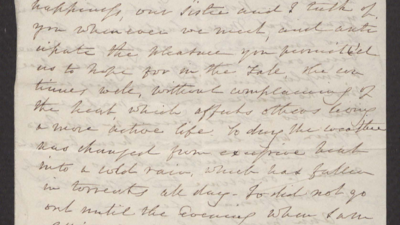 happiness, our Sister and I talk of
you whenever we meet, and anti
cipate the pleasure you promised
us to hope for in the Fall. She con
tinues well, without complaining of
the heat which affects others living
a more active life. To day the weather
has changed from excessive heat
into a cold rain, which has fallen
in torrents all day. So did not go
out until the Evening when I am